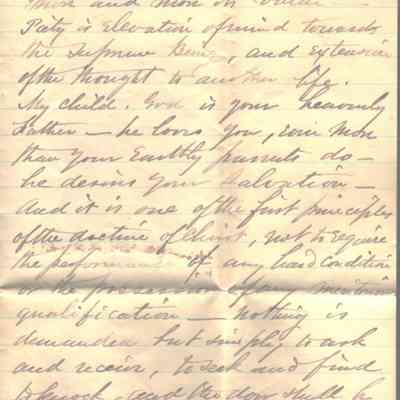 and more on
Piety is elevation of mind towards
the Supreme Being, and extension
of the thought to another life.
My child. God is your heavenly
Father — he loves you, even more
than your Earthly parents do —
he desires your salvation —
And it is one of the first principles
of the doctrine of Christ, not to require
the performance of any hard condition
or the possession of any meritorious
qualification — nothing is
demanded but simply to ask
and receive, to seek and find
to knock, and the door shall be